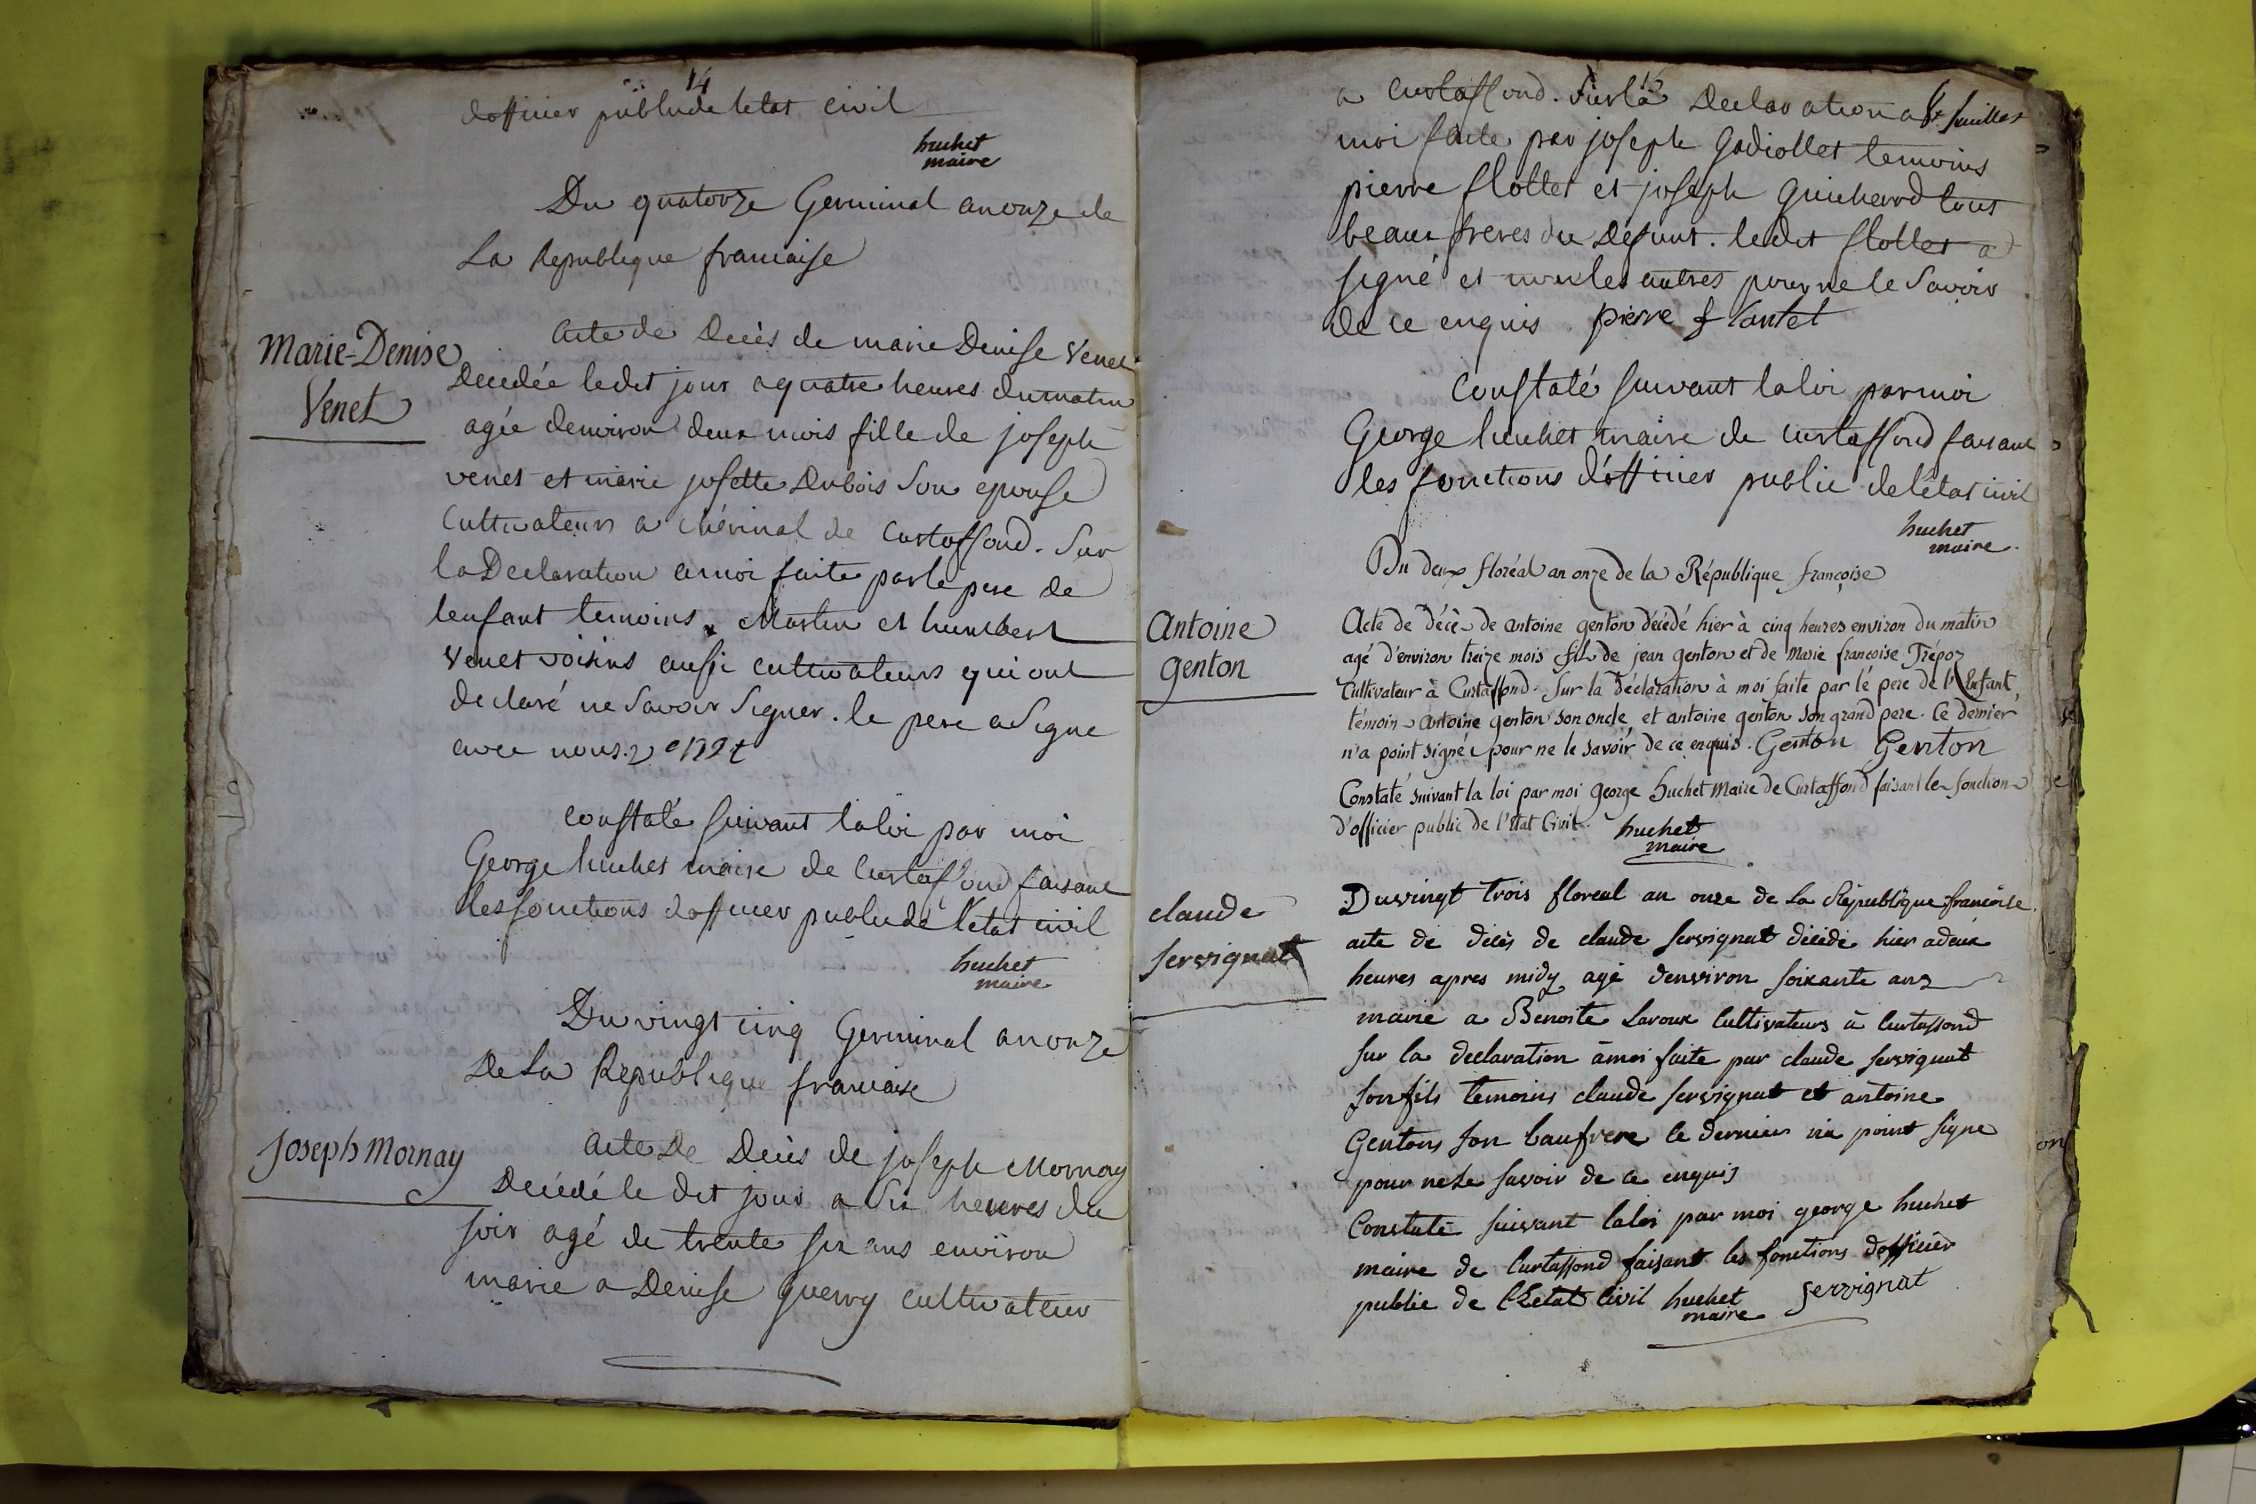 14
dofficier publicde letat civil
huchet
maire
Du quatorze Germinal anonze de
La Republique francaise
Marie-Denise
Venet
acte de Decès de marie Denise Venet
Decedée ledit jour a quatre heures dumatin
agée denviron deux mois fille de joseph
venet et marie josette Dubois Son epouse
Cultivateurs a de Curtaffond. Sur
la Declaration amoi faite parle pere de
lenfant temoins Martin et humbert
Venet voisins aussi cultivateurs qui ont
declaré ne Savoir Signer. le pere a Signe
avec nous.
constaté suivant laloi par moi
George huchet maire de Curtaffond faisant
lesfonctions dofficier publicde l'etat civil
huchet
maire
Du vingt cinq Germinal anonze
De La Republique francaise
Joseph Mornay
acte De Decès de joseph Mornay
Decédé le dit jour a Six heures du
soir agé de trente six ans environ
marie a Denise guerry cultivateur
15
8e. feuillet
a Curtaffond. Surla Declaration a
moi faite par joseph gadiollet temoins
pierre flottet et joseph guicherd tous
beaux freres du Défunt. ledit flottet a
signé et nonles autres pour ne le Savoir
de ce enquis. pierre flontet
Constaté suivant laloi parmoi
George huchet maire de curtaffond faisant
les fonctions d'officier public de l'état civil
huchet
maire.
Du deux floréal an onze de la République françoise
Antoine
genton
Acte de décès de antoine genton décédé hier à cinq heures environ du matin
agé d'environ treize mois fils de jean genton et de Marie francoise Trépoz
Cultivateur à Curtaffond. Sur la déclaration à moi faite par le pere de l'Enfant,
témoins Antoine genton son oncle et antoine genton son grand pere. Ce dernier
n'a point signé pour ne le savoir de ce enquis. Genton Genton
Constaté suivant la loi par moi George huchet Maire de Curtaffond faisant les fonctions
d'officier public de l'Etat Civil.
huchet
maire
claude
servignat
Duvingt trois floreal an onze de La République francoise.
acte de décès de claude servignat décédé hier adeux
heures apres midy agé denviron soixante ans
marié a Benoite Laroux Cultivateurs à Curtaffond
sur la declaration àmoi faite par claude servignat
son fils temoins claude servignat et antoine
Gentons son baufrere le dernier na point signe
pour nele savoir de ce enquis
Constaté suivant laloi par moi george huchet
maire de Curtaffond faisant les fonctions dofficier
public de lEetat Civil huchet servignat
maire